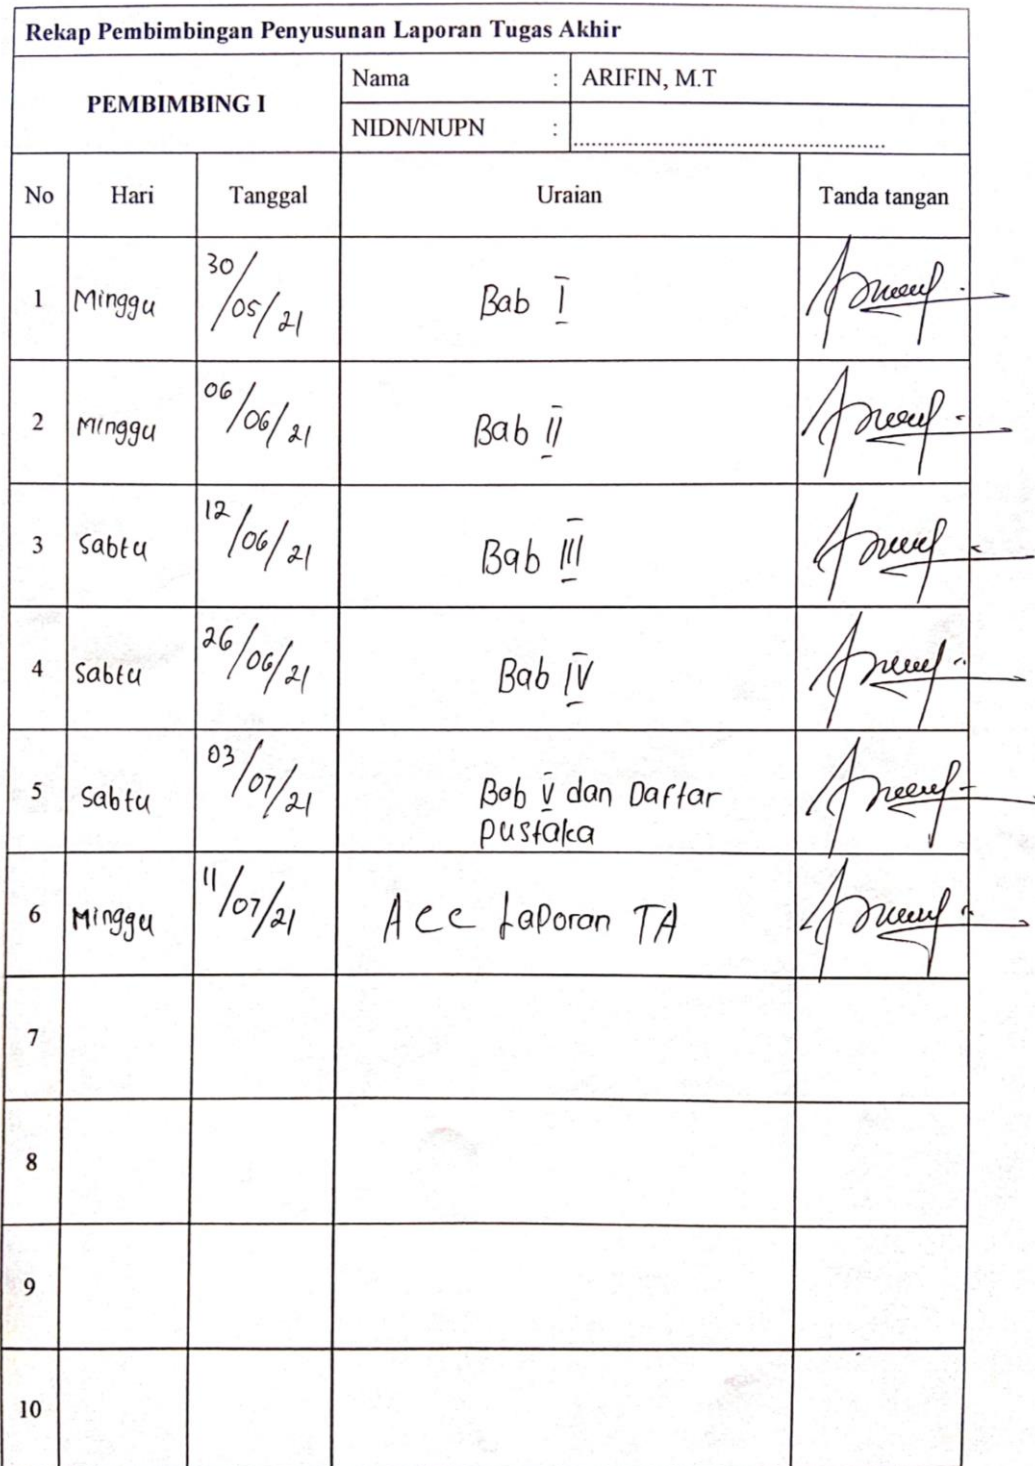 Rekap Pembimbingan Penyusunan Laporan Tugas Akhir
PEMBIMBING I
Nama : ARIFIN, M.T
NIDN/NUPN : ....................................................
No Hari Tanggal Uraian Tanda tangan
1 Minggu 30/05/21 Bab I
2 Minggu 06/06/21 Bab II
3 Sabtu 12/06/21 Bab III
4 Sabtu 26/06/21 Bab IV
5 Sabtu 03/07/21 Bab V dan Daftar
pustaka
6 Minggu 11/07/21 Acc Laporan TA
7
8
9
10